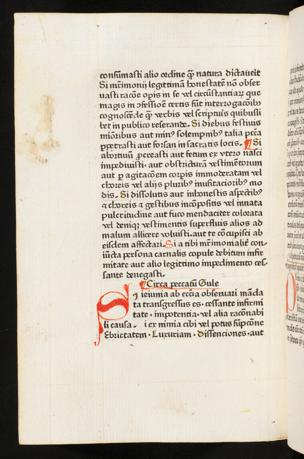 consumasti alio ordine q̄ natura dictauerit
Si mr̄imonij legittimā honestatē nō obser
uasti racōe opis in se vel circūstantiaꝝ que
magis in ɔfessiōe certis sūt interrogacōib꞉
cognoscēde q̄ verbis vel scriptis quibusli
bet in publico reserande. Si diebus festiuis
maioribus aut minꝰ solempnib꞉ talia ꝑcta
ꝑpetrasti aut forsan in sacratis locis. ¶ Si
abortiuū ꝓcreasti aut fetum ex vtero nasci
impediuisti. aut obstructurā vestimētorum
aut ꝑ agitacōem corpis immoderatam vel
choreis vel alijs pluribꝰ
dis. Si dissolutis aut inhonestis aspectib꞉
⁊ choreis ⁊ gestibus incōpositis vel innata
pulcritudine aut fuco mendaciter colorata
vel deniq꞉ vestimentis superfluis alios ad
malum allicere voluisti. aut te cōcupisci ab
eisdem affectasti. Si a tibi mr̄imonialit̄ con
iūcta persona carnalis copule debitum infir
mitate aut alio legittimo impedimento ces
sante denegasti.
¶ Circa peccatū Gule
Si ieiunia ab ecc̄ia obseruari mādata
ta transgressus es. cessante infirmi
tate. impotentia. vel alia racōnabi
li causa. Si ex nimia cibi vel potus sūpcōne
Ebrietatem. Luxuriam. Dissenciones. aut